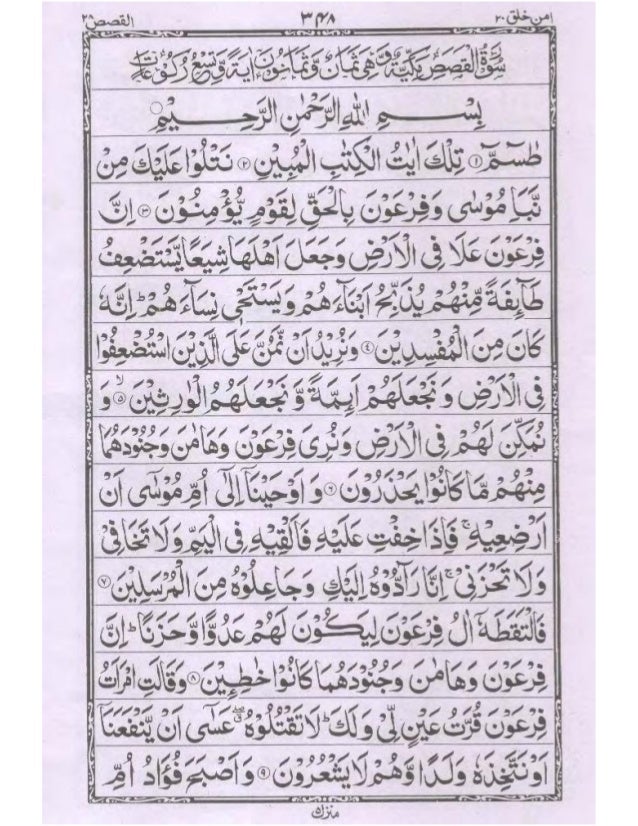 امن خلق ٢٠ ٣٤٨ القصص ٢٨
سُوْرَةُ الْقَصَصِ مَكِّيَّةٌ وَّهِيَ ثَمَانٌ وَّثَمَانُوْنَ اٰيَةً وَّتِسْعُ رُكُوْعَاتٍ
بِسْمِ اللّٰهِ الرَّحْمٰنِ الرَّحِيْمِ
طٰسٓمّٓ ۝١ تِلْكَ اٰيٰتُ الْكِتٰبِ الْمُبِيْنِ ۝٢ نَتْلُوْا عَلَيْكَ مِنْ
نَّبَاِ مُوْسٰى وَفِرْعَوْنَ بِالْحَقِّ لِقَوْمٍ يُّؤْمِنُوْنَ ۝٣ اِنَّ
فِرْعَوْنَ عَلَا فِى الْاَرْضِ وَجَعَلَ اَهْلَهَا شِيَعًا يَّسْتَضْعِفُ
طَآئِفَةً مِّنْهُمْ يُذَبِّحُ اَبْنَآءَهُمْ وَيَسْتَحْيٖ نِسَآءَهُمْ ؕ اِنَّهٗ
كَانَ مِنَ الْمُفْسِدِيْنَ ۝٤ وَنُرِيْدُ اَنْ نَّمُنَّ عَلَى الَّذِيْنَ اسْتُضْعِفُوْا
فِى الْاَرْضِ وَنَجْعَلَهُمْ اَئِمَّةً وَّنَجْعَلَهُمُ الْوٰرِثِيْنَ ۙ۝٥ وَ
نُمَكِّنَ لَهُمْ فِى الْاَرْضِ وَنُرِىَ فِرْعَوْنَ وَهَامٰنَ وَجُنُوْدَهُمَا
مِنْهُمْ مَّا كَانُوْا يَحْذَرُوْنَ ۝٦ وَاَوْحَيْنَاۤ اِلٰٓى اُمِّ مُوْسٰٓى اَنْ
اَرْضِعِيْهِ ۚ فَاِذَا خِفْتِ عَلَيْهِ فَاَلْقِيْهِ فِى الْيَمِّ وَلَا تَخَافِيْ
وَلَا تَحْزَنِيْ ۚ اِنَّا رَآدُّوْهُ اِلَيْكِ وَجَاعِلُوْهُ مِنَ الْمُرْسَلِيْنَ ۝٧
فَالْتَقَطَهٗۤ اٰلُ فِرْعَوْنَ لِيَكُوْنَ لَهُمْ عَدُوًّا وَّحَزَنًا ؕ اِنَّ
فِرْعَوْنَ وَهَامٰنَ وَجُنُوْدَهُمَا كَانُوْا خٰطِـِٕيْنَ ۝٨ وَقَالَتِ امْرَاَتُ
فِرْعَوْنَ قُرَّتُ عَيْنٍ لِّيْ وَلَكَ ؕ لَا تَقْتُلُوْهُ ۖ عَسٰٓى اَنْ يَّنْفَعَنَاۤ
اَوْ نَتَّخِذَهٗ وَلَدًا وَّهُمْ لَا يَشْعُرُوْنَ ۝٩ وَاَصْبَحَ فُؤَادُ اُمِّ
منزل ٥